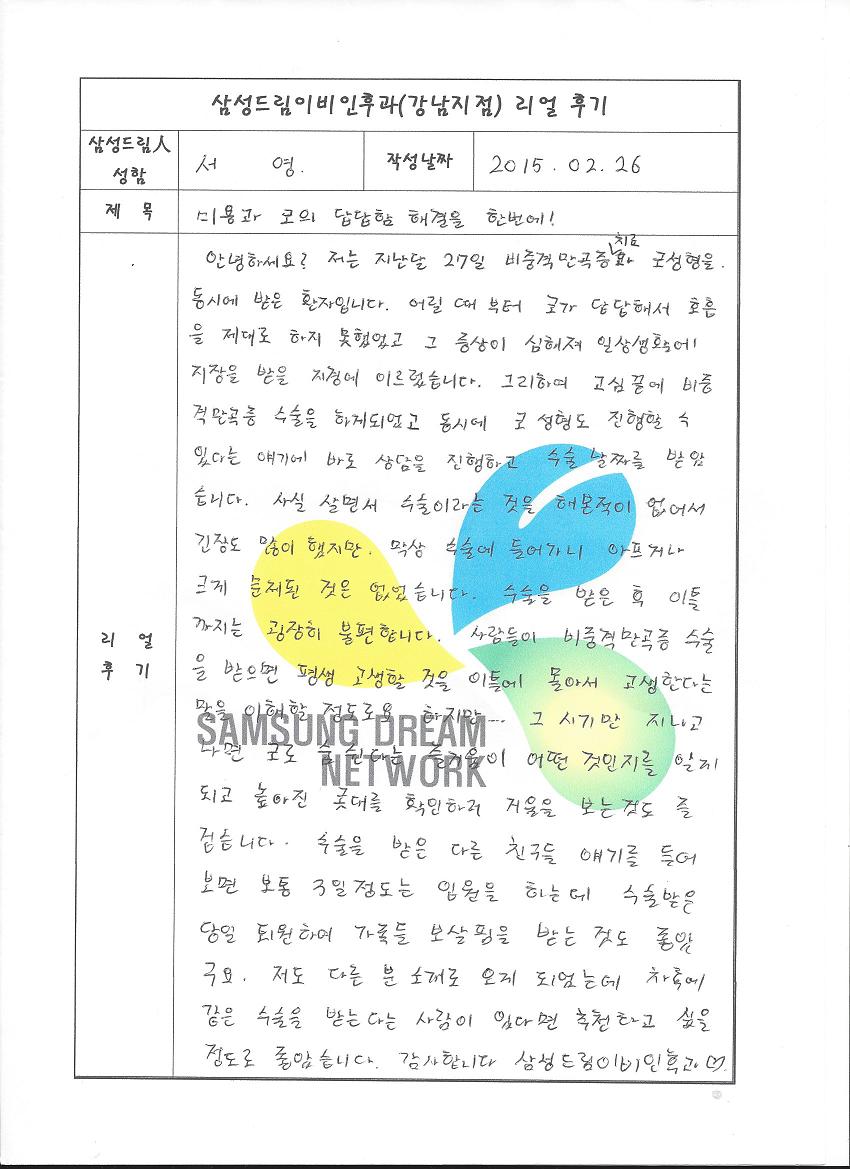 삼성드림이비인후과(강남지점) 리얼 후기
삼성드림人 성함
서 영.
작성날짜
2015.02.26
제 목
미용과 코의 답답함 해결을 한번에!
리 얼
후 기
안녕하세요? 저는 지난달 27일 비중격만곡증 치료와 코성형을.
동시에 받은 환자입니다. 어릴 때 부터 코가 답답해서 호흡
을 제대로 하지 못했었고 그 증상이 심해져 일상생활에
지장을 받을 지경에 이르렀습니다. 그리하여 고심 끝에 비중
격만곡증 수술을 하게되었고 동시에 코 성형도 진행할 수
있다는 얘기에 바로 상담을 진행하고 수술 날짜를 받았
습니다. 사실 살면서 수술이라는 것을 해본적이 없어서
긴장도 많이 했지만. 막상 수술에 들어가니 아프거나
크게 문제된 것은 없었습니다. 수술을 받은 후 이틀
까지는 굉장히 불편합니다. 사람들이 비중격만곡증 수술
을 받으면 평생 고생할 것을 이틀에 몰아서 고생한다는
말을 이해할 정도로요 하지만... 그 시기만 지나고
나면 코로 숨 쉰다는 즐거움이 어떤 것인지를 알게
되고 높아진 콧대를 확인하러 거울을 보는것도 즐
겁습니다. 수술을 받은 다른 친구들 얘기를 들어
보면 보통 3일정도는 입원을 하는데 수술받은
당일 퇴원하여 가족들 보살핌을 받는 것도 좋았
구요. 저도 다른 분 소개로 오게 되었는데 차후에
같은 수술을 받는다는 사람이 있다면 추천하고 싶을
정도로 좋았습니다. 감사합니다 삼성드림이비인후과
SAMSUNG DREAM
NETWORK